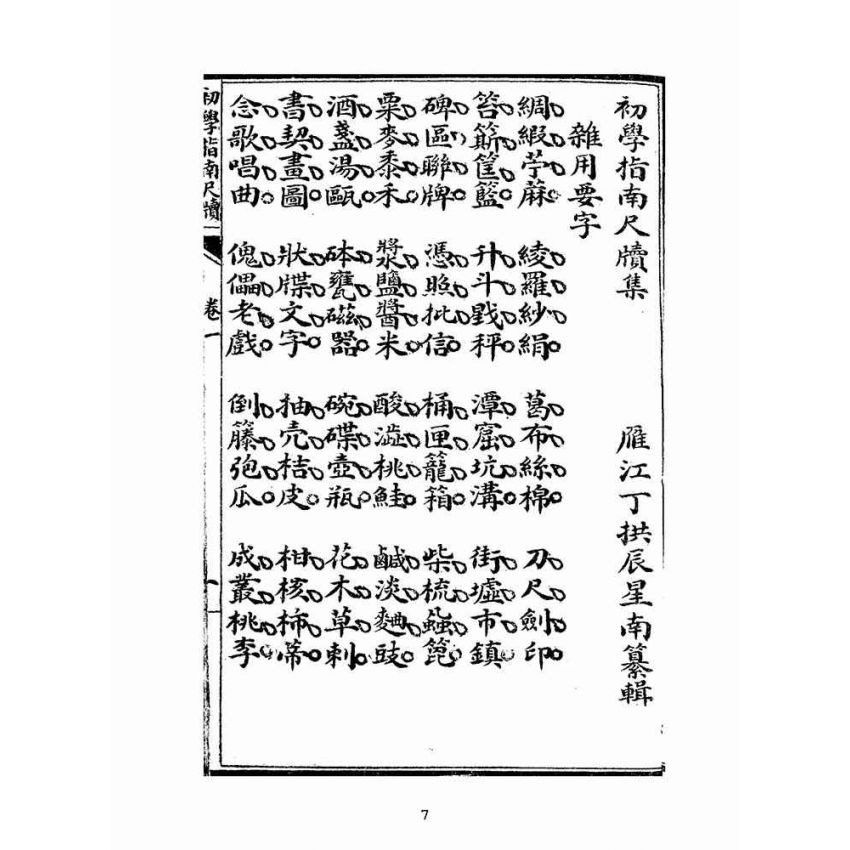 初學指南尺牘集
雁江丁拱辰星南纂輯
雜用要字
綢緞苧蔴。綾羅紗絹。葛布絲棉。刀尺劍印。
笤篩筐籃。升斗戥秤。潭窟坑溝。街墟市鎮。
碑匾聯牌。憑照批信。桶匣籠箱。柴梳蝨篦。
粟麥黍禾。漿鹽醬米。酸澁桃鮭。鹹淡麯豉。
酒盞湯甌。砵甕磁器。碗碟壺瓶。花木草刺。
書契畫圖。狀牒文字。抽売桔皮。柑核柿蒂。
念歌唱曲。傀儡老戲。倒籐匏瓜。成叢桃李。
初學指南尺牘
卷一
一
7